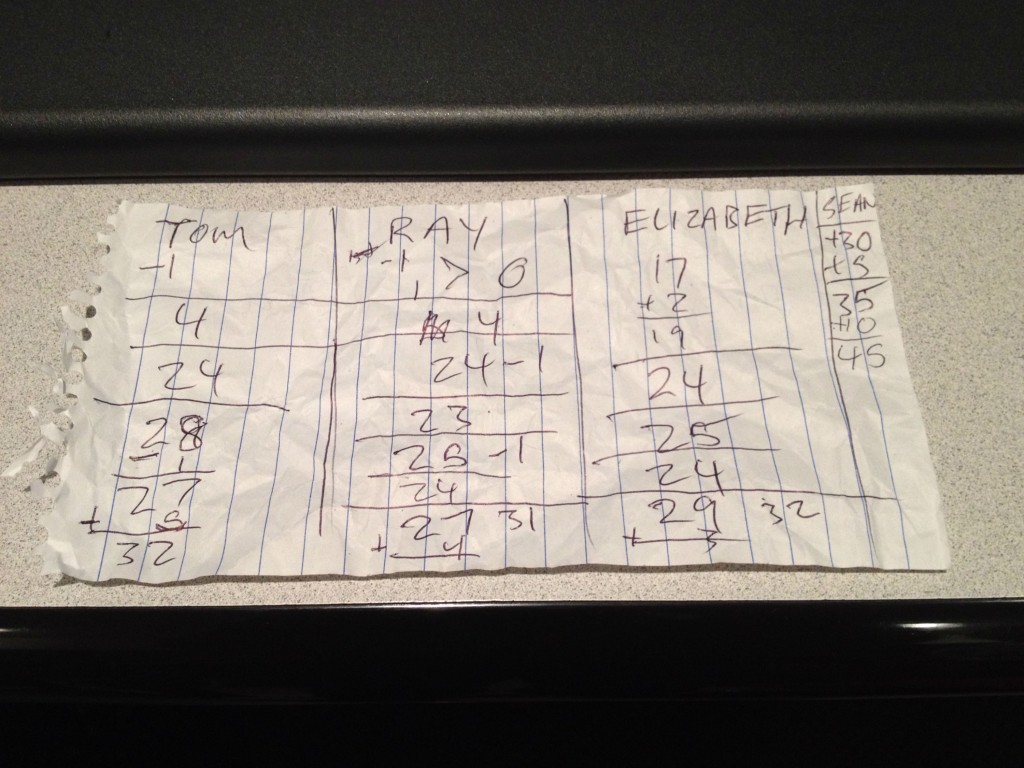 Tom
-1
4
24
28
-1
27
+ 5
32
RAY
-1
1 > 0
4
24-1
23
25 -1
24
27 31
+ 4
ELIZABETH
17
+2
19
24
25
24
29 32
+ 3
SEAN
+30
+5
35
+10
45